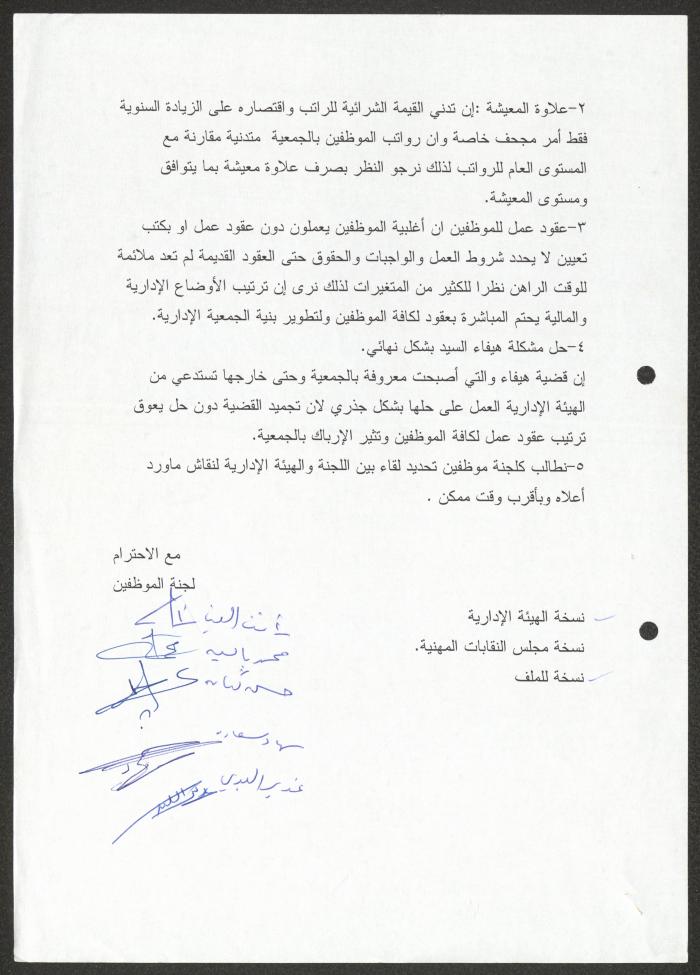 ٢-علاوة المعيشة :إن تدني القيمة الشرائية للراتب واقتصاره على الزيادة السنوية
فقط أمر مجحف خاصة وان رواتب الموظفين بالجمعية متدنية مقارنة مع
المستوى العام للرواتب لذلك نرجو النظر بصرف علاوة معيشة بما يتوافق
ومستوى المعيشة.
٣-عقود عمل للموظفين ان أغلبية الموظفين يعملون دون عقود عمل او بكتب
تعيين لا يحدد شروط العمل والواجبات والحقوق حتى العقود القديمة لم تعد ملائمة
للوقت الراهن نظرا للكثير من المتغيرات لذلك نرى إن ترتيب الأوضاع الإدارية
والمالية يحتم المباشرة بعقود لكافة الموظفين ولتطوير بنية الجمعية الإدارية.
٤-حل مشكلة هيفاء السيد بشكل نهائي.
إن قضية هيفاء والتي أصبحت معروفة بالجمعية وحتى خارجها تستدعي من
الهيئة الإدارية العمل على حلها بشكل جذري لان تجميد القضية دون حل يعوق
ترتيب عقود عمل لكافة الموظفين وتثير الإرباك بالجمعية.
٥-نطالب كلجنة موظفين تحديد لقاء بين اللجنة والهيئة الإدارية لنقاش ماورد
أعلاه وبأقرب وقت ممكن .
مع الاحترام
لجنة الموظفين
نسخة الهيئة الإدارية
نسخة مجلس النقابات المهنية.
نسخة للملف
محمد
حسن
سهاد سعادة
غدير العبدي